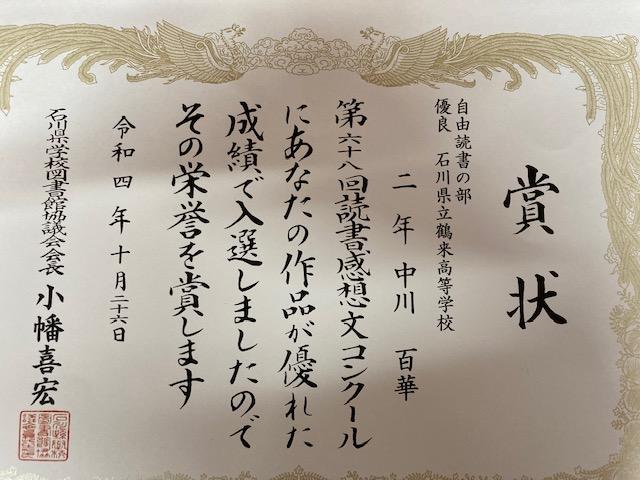 賞状
自由読書の部
優良 石川県立鶴来高等学校
二年 中川 百華
第六十八回読書感想文コンクール
にあなたの作品が優れた
成績で入選しましたので
その栄誉を賞します
令和四年十月二十六日
石川県学校図書館協議会会長 小幡喜宏